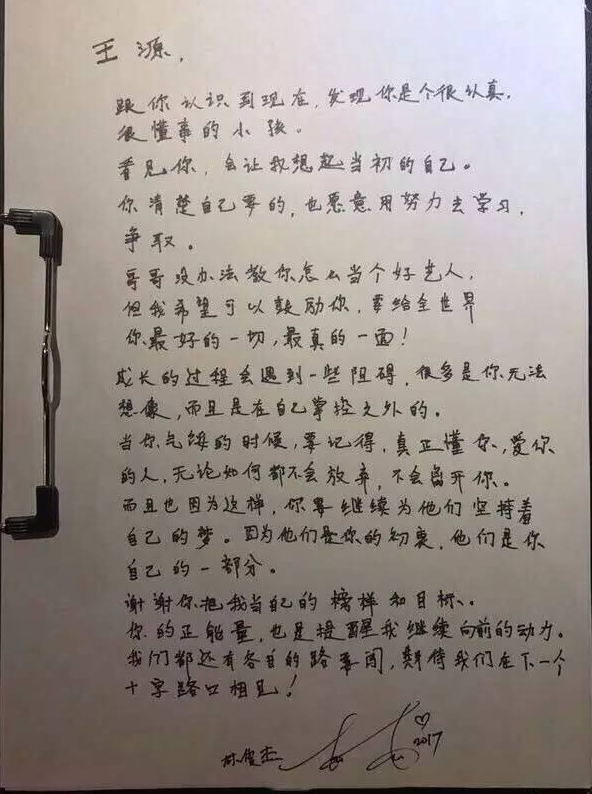 王源，
跟你认识到现在，发现你是个很认真，
很懂事的小孩。
看见你，会让我想起当初的自己。
你清楚自己要的，也愿意用努力去学习，
争取。
哥哥没办法教你怎么当个好艺人，
但我希望可以鼓励你，要给全世界
你最好的一切，最真的一面！
成长的过程会遇到一些阻碍，很多是你无法
想像，而且是在自己掌控之外的。
当你气馁的时候，要记得，真正懂你，爱你
的人，无论如何都不会放弃，不会离开你。
而且也因为这样，你要继续为他们坚持着
自己的梦。因为他们是你的初衷，他们是你
自己的一部分。
谢谢你把我当自己的榜样和目标。
你的正能量，也是提醒我继续向前的动力。
我们都还有各自的路要闯，期待我们在下一个
十字路口相见！
林俊杰
♡
2017